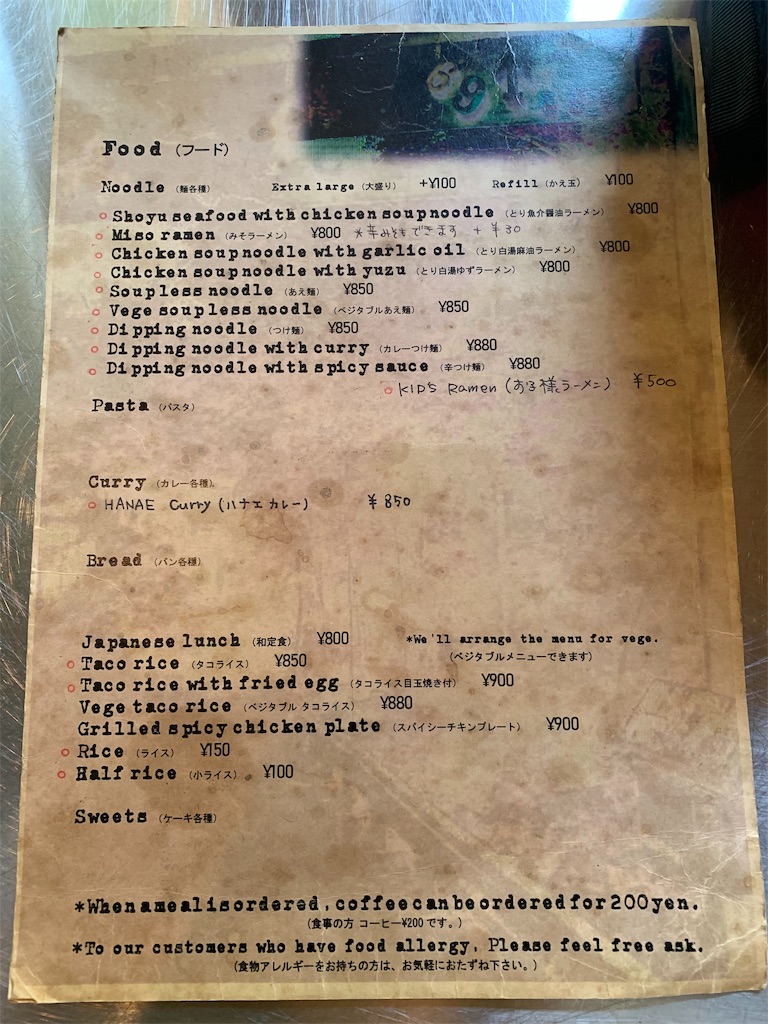 Food （フード）
Noodle （麺各種） Extra large （大盛り） +¥100 Refill （かえ玉） ¥100
Shoyu seafood with chicken soup noodle （とり魚介醤油ラーメン） ¥800
Miso ramen （みそラーメン） ¥800 ※辛みそもできます +¥30
Chicken soup noodle with garlic oil （とり白湯麻油ラーメン） ¥800
Chicken soup noodle with yuzu （とり白湯ゆずラーメン） ¥800
Soupless noodle （あえ麺） ¥850
Vege soupless noodle （ベジタブルあえ麺） ¥850
Dipping noodle （つけ麺） ¥850
Dipping noodle with curry （カレーつけ麺） ¥880
Dipping noodle with spicy sauce （辛つけ麺） ¥880
KID'S Ramen (お子様ラーメン) ¥500
Pasta （パスタ）
Curry （カレー各種）
HANAE Curry (ハナエカレー) ¥850
Bread （パン各種）
Japanese lunch （和定食） ¥800 *We'll arrange the menu for vege.
Taco rice （タコライス） ¥850 （ベジタブルメニューできます）
Taco rice with fried egg （タコライス目玉焼き付） ¥900
Vege taco rice （ベジタブル タコライス） ¥880
Grilled spicy chicken plate （スパイシーチキンプレート） ¥900
Rice （ライス） ¥150
Half rice （小ライス） ¥100
Sweets （ケーキ各種）
*When a meal is ordered, coffee can be ordered for 200 yen.
（食事の方 コーヒー¥200 です。）
*To our customers who have food allergy, Please feel free ask.
（食物アレルギーをお持ちの方は、お気軽におたずね下さい。）